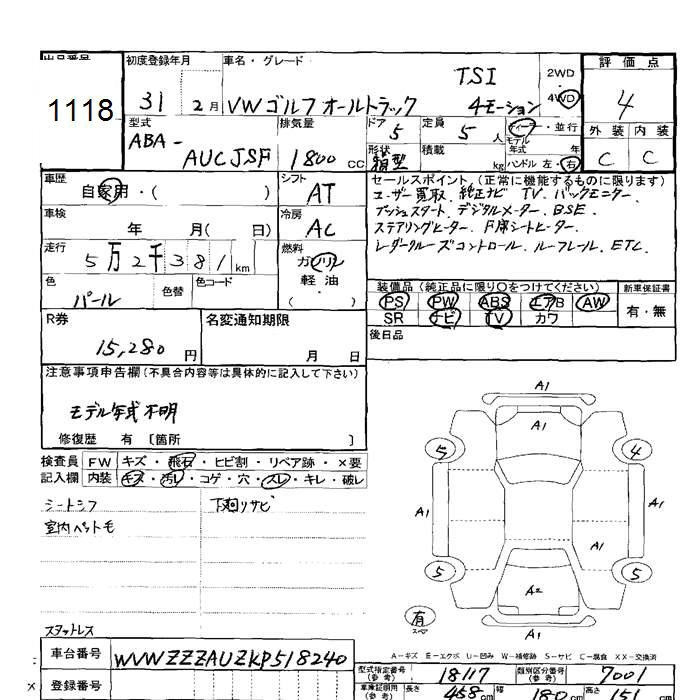 出品番号
1118
初度登録年月
31 2月
車名・グレード
TSI
VWゴルフオールトラック 4モーション
2WD
4WD
評価点
4
外装 内装
C C
型式
ABA-
AUCJSF
排気量
1800 CC
ドア 5
定員 5 人
ディーラー・並行
モデル年式 年
形状 箱型
積載 kg
ハンドル 左・右
車歴
自家用・( )
シフト
AT
車検
年 月(日)
冷房
AC
走行
5万2千381km
燃料
ガソリン
軽油
( )
色
パール
色替
色コード
セールスポイント(正常に機能するものに限ります)
ユーザー買取、純正ナビ TV、バックモニター、
プッシュスタート、デジタルメーター、BSE、
ステアリングヒーター、F席シートヒーター、
レーダークルーズコントロール、ルーフレール、ETC、
装備品(純正品に限り○をつけてください)
新車保証書
PS PW ABS エアB AW
SR ナビ TV カワ
有・無
後日品
R券
15,280 円
名変通知期限
月 日
注意事項申告欄(不具合内容等は具体的に記入して下さい)
モデル年式不明
修復歴 有 〔箇所 〕
検査員 FW キズ・飛石・ヒビ割・リペア跡・×要
記入欄 内装 キズ・汚レ・コゲ・穴・スレ・キレ・破レ
シートシワ
下廻リサビ
室内ペット毛
スタッドレス
A1
A1
5
4
A1
A1
A1
5
5
A2
有
スペア
A1
A-キズ E-エクボ U-凹み W-補修跡 S-サビ C-腐食 XX-交換済
車台番号
WVWZZZAUZKP518240
型式指定番号(参考)
18117
類別区分番号(参考)
7001
X 登録番号
車庫証明用(参考)
長さ 468cm
幅 180cm
高さ 151cm